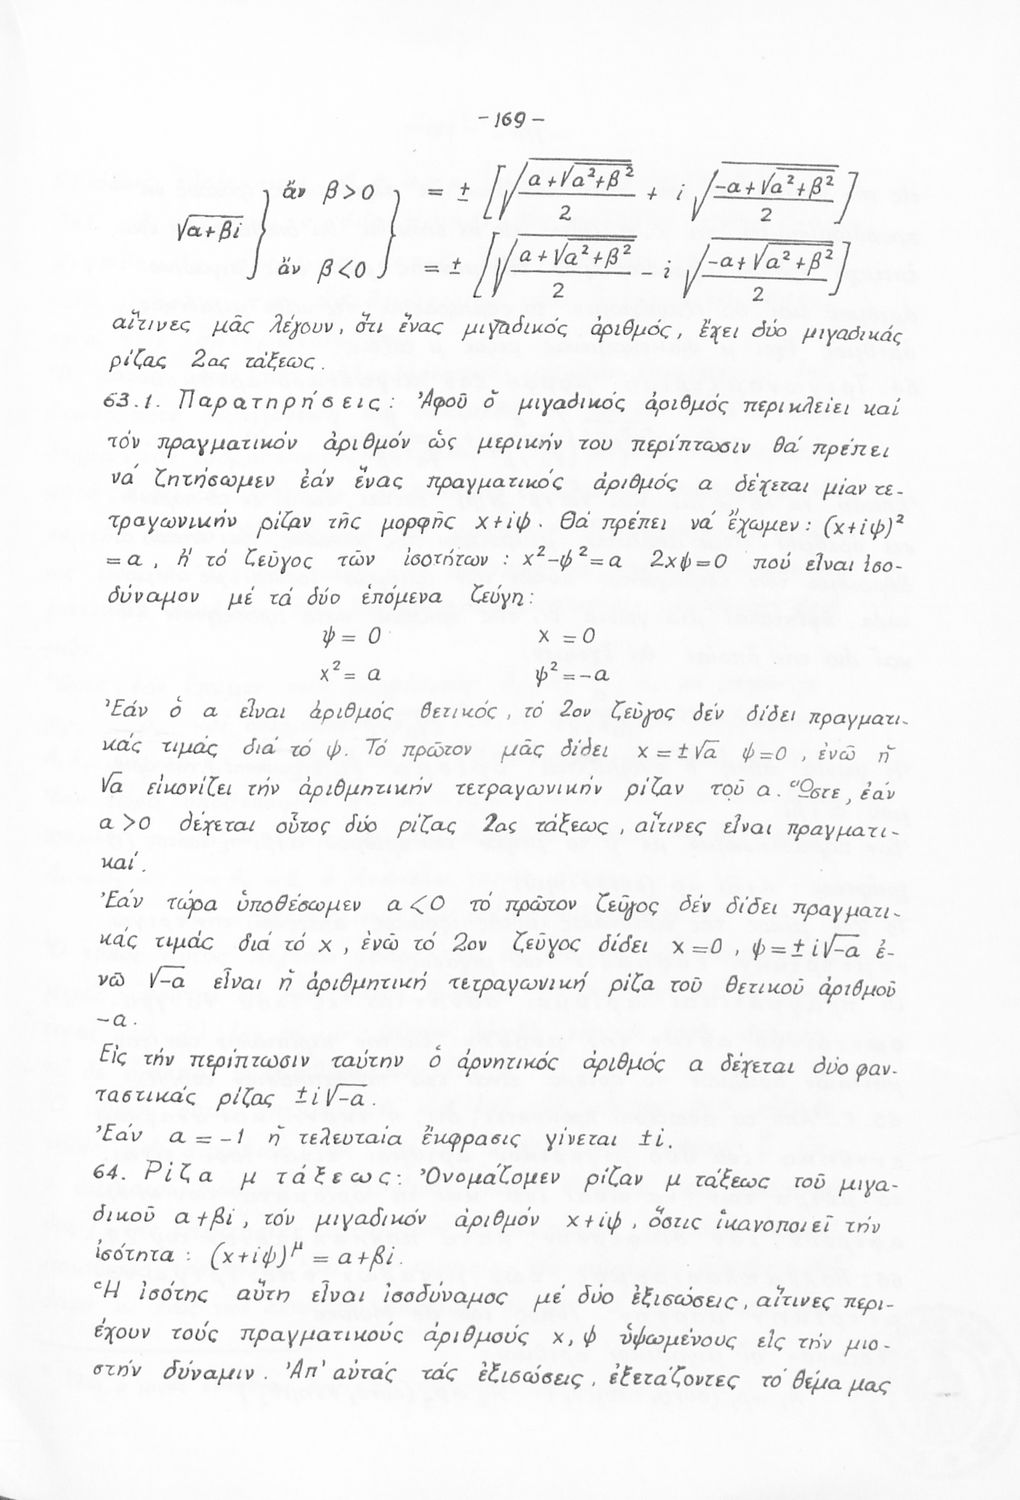 -169-
√(α+βi) } ἄν β>0 } = ± [√((α+√(α²+β²))/2) + i √((-α+√(α²+β²))/2)]
ἄν β<0 } = ± [√((α+√(α²+β²))/2) - i √((-α+√(α²+β²))/2)]
αἵτινες μᾶς λέγουν, ὅτι ἕνας μιγαδικός ἀριθμός, ἔχει δύο μιγαδικάς
ρίζας 2ας τάξεως.
63.1. Παρατηρήσεις: Ἀφοῦ ὁ μιγαδικός ἀριθμός περικλείει καί
τόν πραγματικόν ἀριθμόν ὡς μερικήν του περίπτωσιν θά πρέπει
νά ζητήσωμεν ἐάν ἕνας πραγματικός ἀριθμός α δέχεται μίαν τε-
τραγωνικήν ρίζαν τῆς μορφῆς x+iψ. Θά πρέπει νά ἔχωμεν: (x+iψ)²
=α, ἤ τό ζεῦγος τῶν ἰσοτήτων : x²-ψ²=α 2xψ=0 πού εἶναι ἰσο-
δύναμον μέ τά δύο ἑπόμενα ζεύγη:
ψ = 0 x = 0
x² = α ψ² = -α
Ἐάν ὁ α εἶναι ἀριθμός θετικός, τό 2ον ζεῦγος δέν δίδει πραγματι-
κάς τιμάς διά τό ψ. Τό πρῶτον μᾶς δίδει x = ±√α ψ=0, ἐνῶ ἡ
√α εἰκονίζει τήν ἀριθμητικήν τετραγωνικήν ρίζαν τοῦ α. Ὥστε, ἐάν
α>0 δέχεται οὗτος δύο ρίζας 2ας τάξεως, αἵτινες εἶναι πραγματι-
καί.
Ἐάν τώρα ὑποθέσωμεν α<0 τό πρῶτον ζεῦγος δέν δίδει πραγματι-
κάς τιμάς διά τό x, ἐνῶ τό 2ον ζεῦγος δίδει x=0, ψ=±i√-α ἐ-
νῶ √-α εἶναι ἡ ἀριθμητική τετραγωνική ρίζα τοῦ θετικοῦ ἀριθμοῦ
-α.
Εἰς τήν περίπτωσιν ταύτην ὁ ἀρνητικός ἀριθμός α δέχεται δύο φαν-
ταστικάς ρίζας ±i√-α.
Ἐάν α = -1 ἡ τελευταία ἔκφρασις γίνεται ±i.
64. Ρίζα μ τάξεως: Ὀνομάζομεν ρίζαν μ τάξεως τοῦ μιγα-
δικοῦ α+βi, τόν μιγαδικόν ἀριθμόν x+iψ, ὅστις ἱκανοποιεῖ τήν
ἰσότητα : (x+iψ)^μ = α+βi.
Ἡ ἰσότης αὕτη εἶναι ἰσοδύναμος μέ δύο ἐξισώσεις, αἵτινες περι-
έχουν τούς πραγματικούς ἀριθμούς x, ψ ὑψωμένους εἰς τήν μιο-
στήν δύναμιν. Ἀπ' αὐτάς τάς ἐξισώσεις, ἐξετάζοντες τό θέμα μας